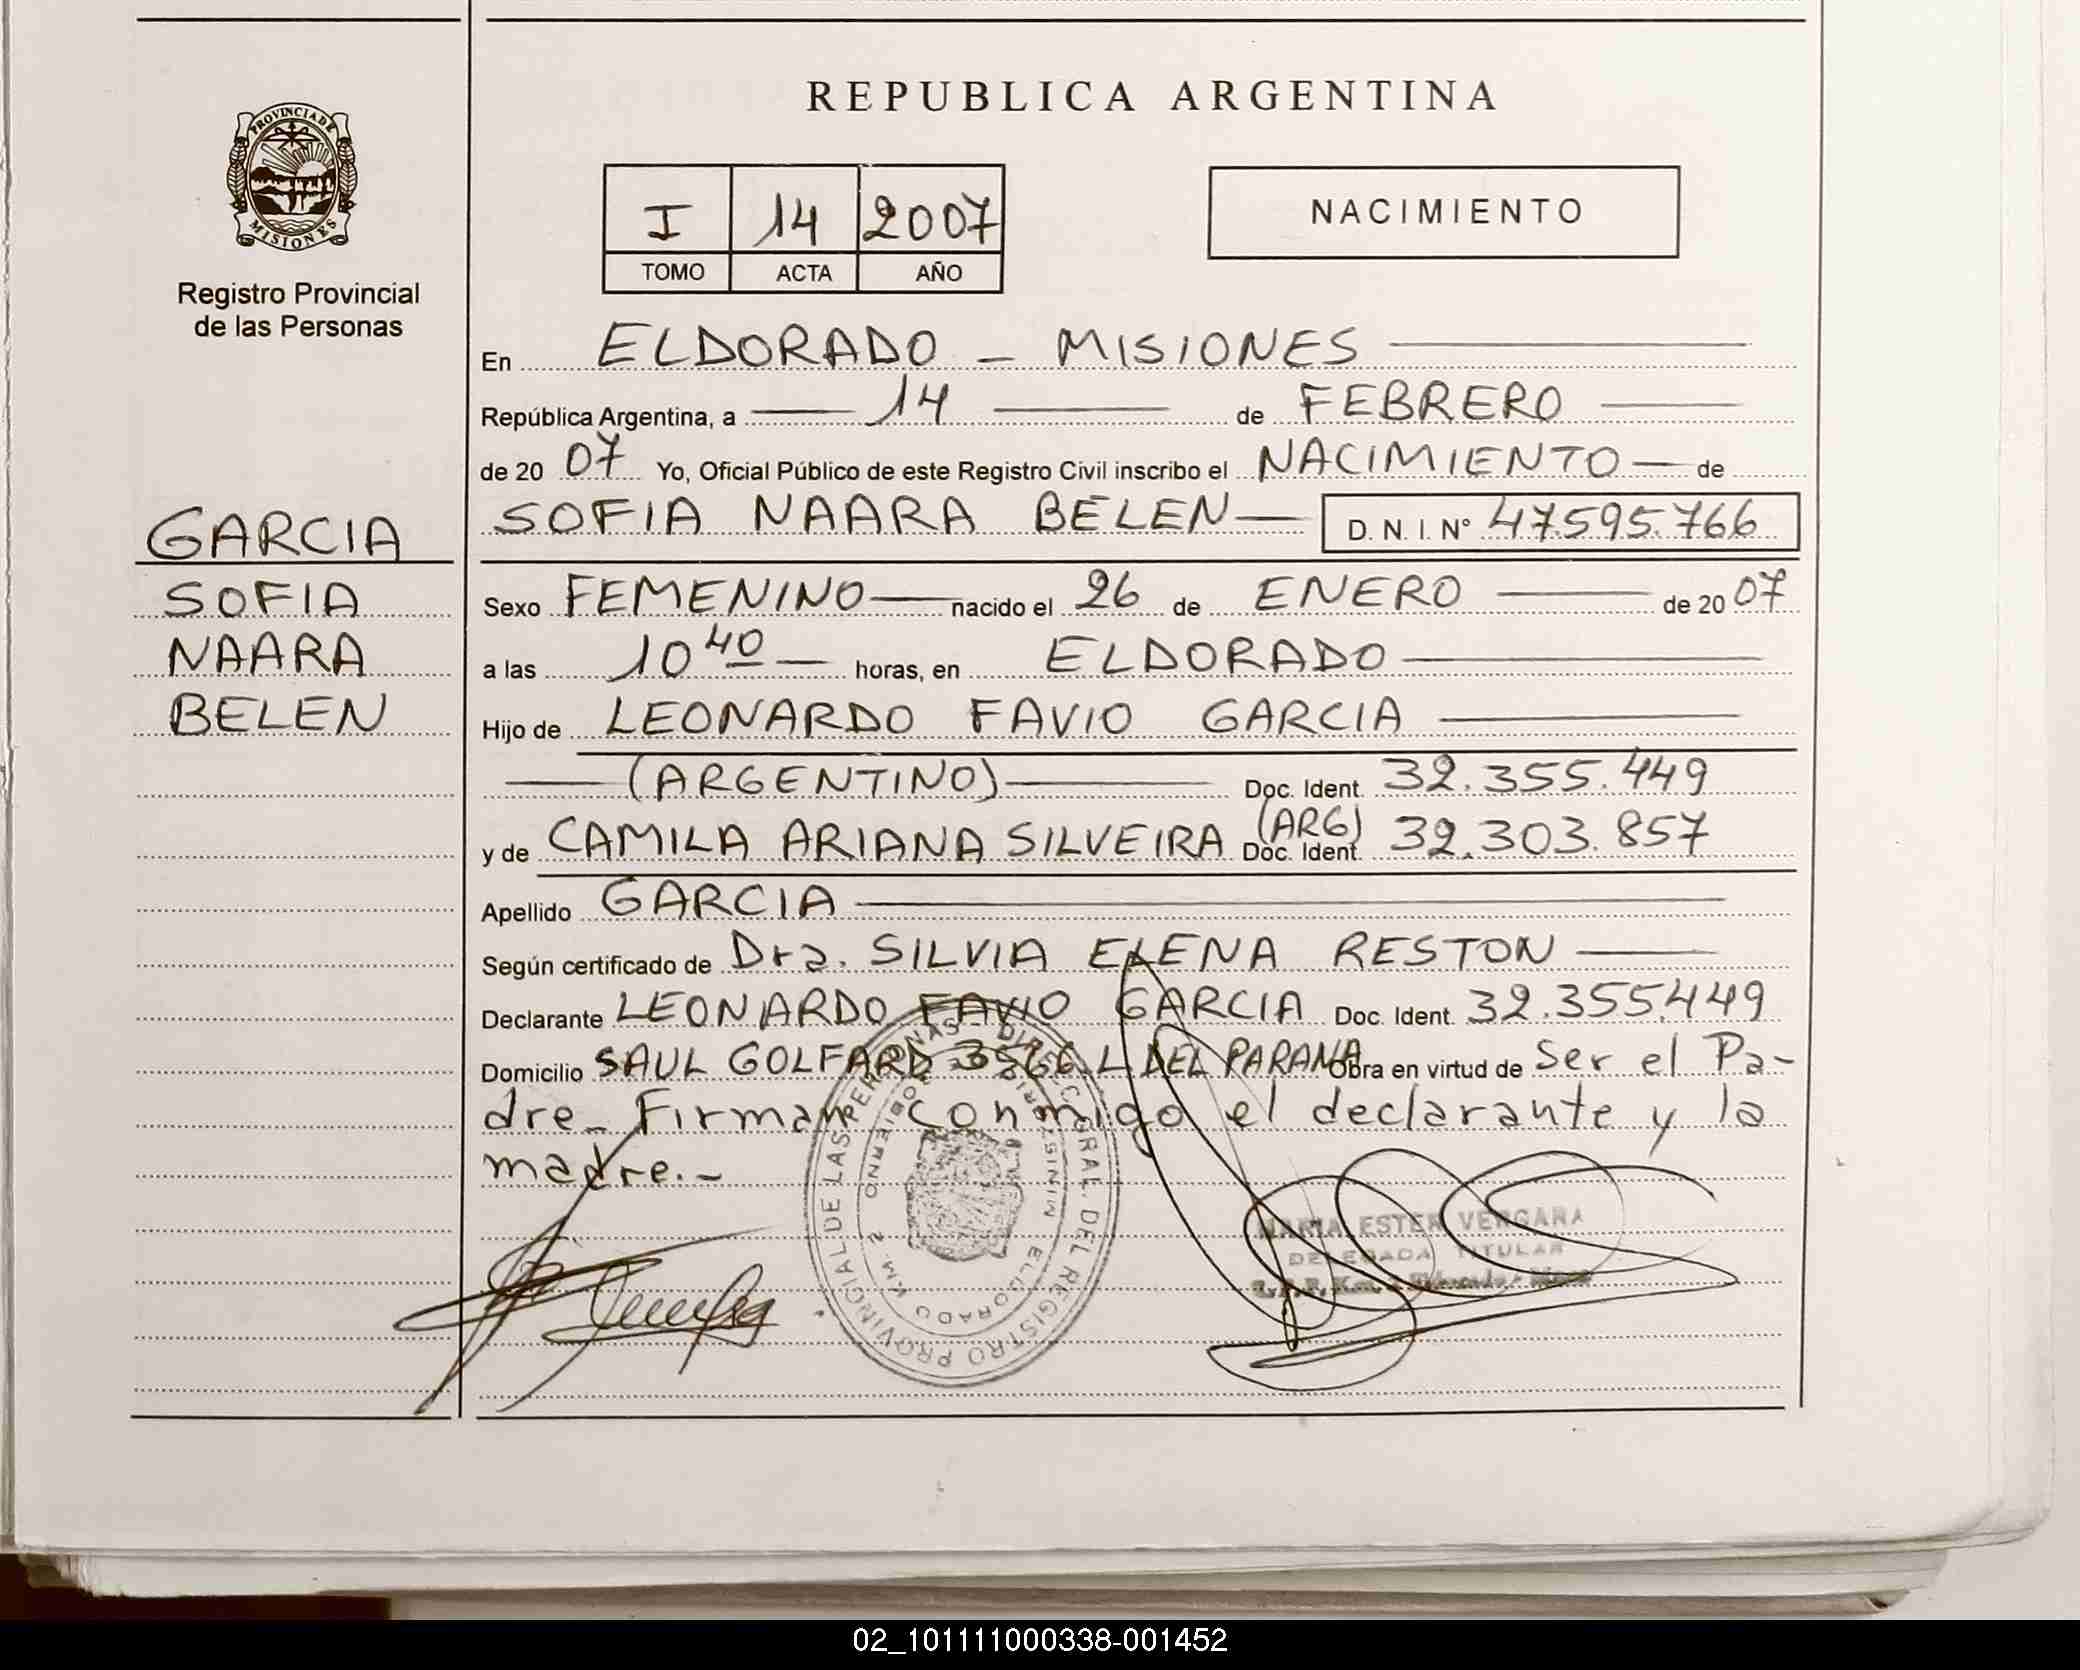 REPUBLICA ARGENTINA
PROVINCIA DE
MISIONES
Registro Provincial
de las Personas
I 14 2007
TOMO ACTA AÑO
NACIMIENTO
En ELDORADO - MISIONES
República Argentina, a 14 de FEBRERO
de 20 07 Yo, Oficial Público de este Registro Civil inscribo el NACIMIENTO de
SOFIA NAARA BELEN D. N. I. N° 47.595.766
GARCIA
SOFIA
NAARA
BELEN
Sexo FEMENINO nacido el 26 de ENERO de 20 07
a las 10 40 horas, en ELDORADO
Hijo de LEONARDO FAVIO GARCIA
(ARGENTINO) Doc. Ident. 32.355.449
y de CAMILA ARIANA SILVEIRA (ARG) Doc. Ident. 32.303.857
Apellido GARCIA
Según certificado de Dra. SILVIA ELENA RESTON
Declarante LEONARDO FAVIO GARCIA Doc. Ident. 32.355.449
Domicilio SAUL GOLFARD L DEL PARANA Obra en virtud de Ser el Pa-
dre_ Firman conmigo el declarante y la
madre.-
DIREC. GRAL. DEL REGISTRO PROVINCIAL DE LAS PERSONAS
ELDORADO K.M. 2
MARIA ESTER VERGARA
DELEGADA TITULAR
02_101111000338-001452